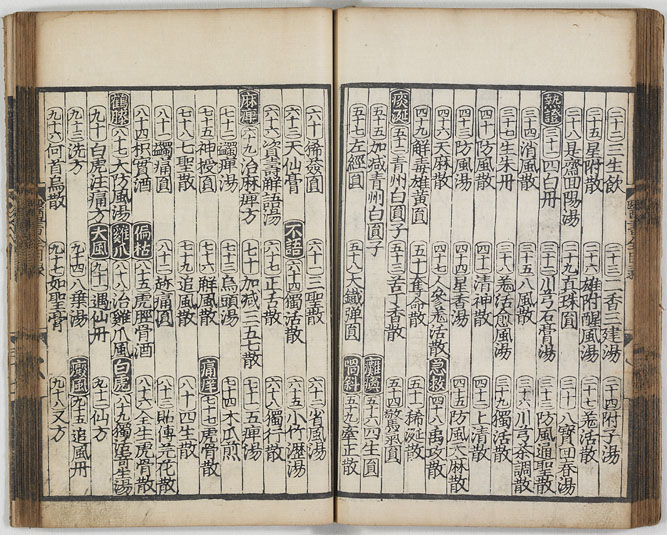 二十二三生飲 二十三一香三建湯 二十四附子湯
二十五星附散 二十六雄附醒風湯 二十七羗活散
二十八具齋回陽湯 二十九真珠圓 三十八寶回春湯
熱證 三十一四白丹 三十二川芎石膏湯 三十三防風通聖散
三十四消風散 三十五八風散 三十六川芎茶調散
三十七生朱丹 三十八羗活愈風湯 三十九獨活散
四十防風散 四十一清神散 四十二上清散
四十三防風湯 四十四星香湯 四十五防風天麻散
四十六天麻散 四十七人參羗活散 急救 四十八禹攻散
四十九解毒雄黃圓 五十奪命散 五十一稀涎散
痰涎 五十二青州白圓子 五十三苦丁香散 五十四驚氣圓
五十五加減青州白圓子 癱瘓 五十六四生圓
五十七左經圓 五十八大鐵彈圓 喎斜 五十九牽正散
六十豨薟圓 六十一三聖散 六十二省風湯
六十三天仙膏 不語 六十四獨活散 六十五小竹瀝湯
六十六資壽解語湯 六十七正舌散 六十八獨行散
麻痺 六十九治麻痺方 七十加減三五七散 七十一五痺湯
七十二蠲痺湯 七十三烏頭湯 七十四木瓜煎
七十五神授圓 七十六解風散 痛痺 七十七虎骨散
七十八七聖散 七十九追風散 八十四生散
八十一蠲痛圓 八十二痛圓 八十三賜傳芫花散
八十四枳實酒 偏枯 八十五虎脛骨酒 八十六全生虎骨散
鶴膝 八十七大防風湯 雞爪 八十八治雞爪風 白虎 八十九獨活寄生湯
九十白虎注痛方 大風 九十一遇仙丹 九十二仙方
九十三洗方 九十四八葉湯 癘風 九十五追風丹
九十六何首烏散 九十七如聖膏 九十八又方